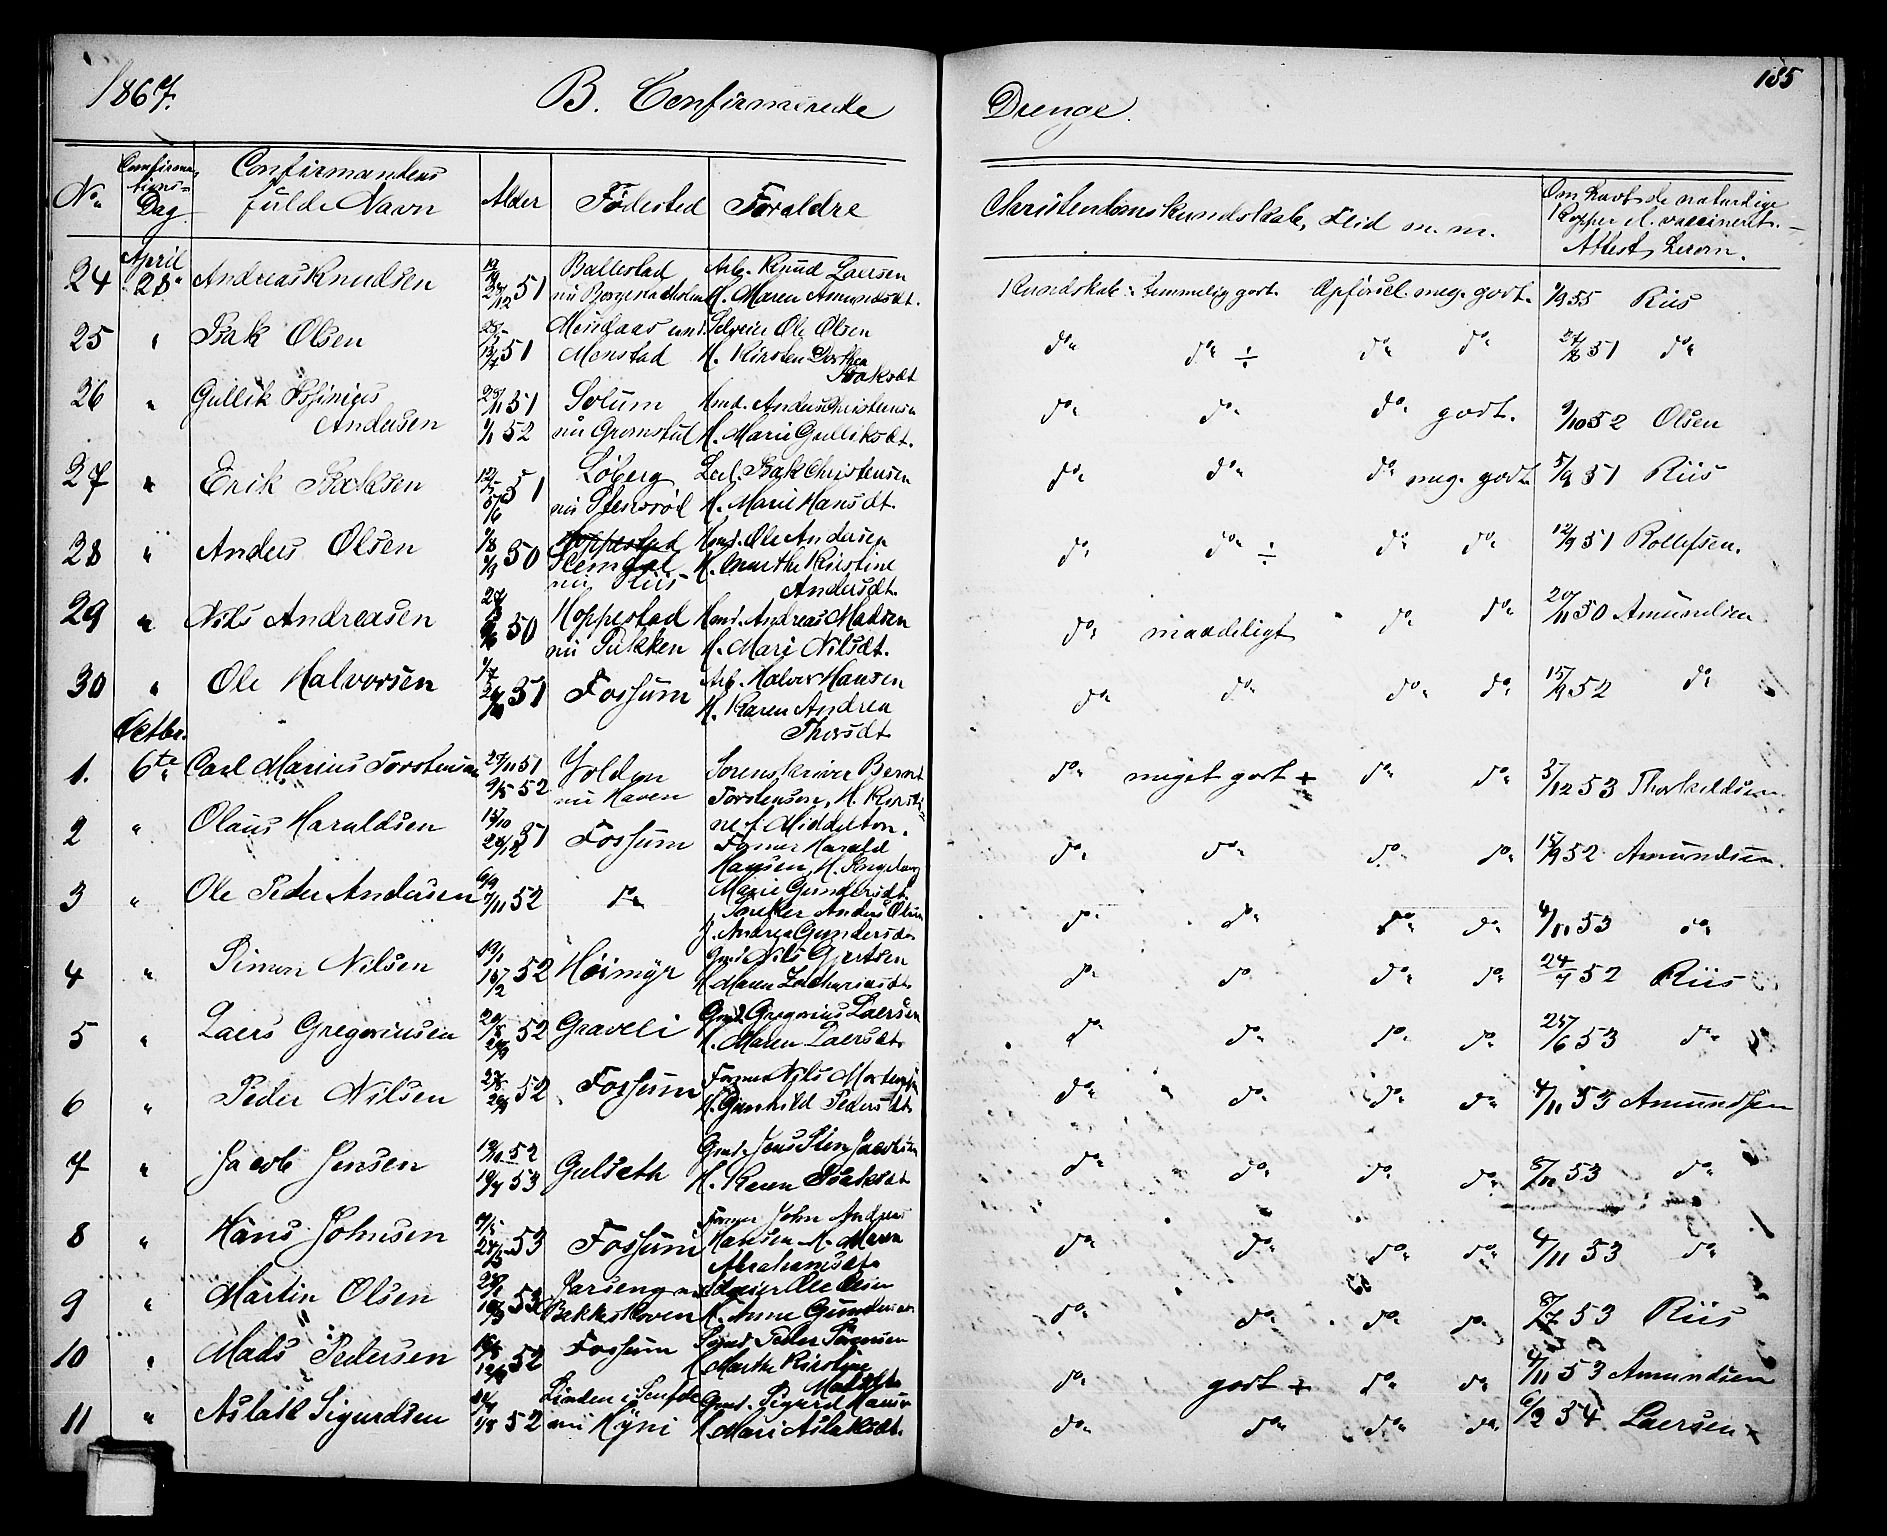 1867. B. Confirmerede Drenge. 185
No. Confirmations-Dag Confirmandens fulde Navn Alder Fødested Forældre Christendomskundskab, Flid m. m. Om havt de naturlige Kopper el. vaccineret. Attest herom.
24 April 28 Andreas Knudsen 51 Ballestad nu Borgestadholm Arb. Knud Laersen H. Maren Amundsdt. Kundskab: temmelig godt. Opførsel meg. godt. 55 Riis
25 " Isak Olsen 51 Menstad Selveier Ole Olsen H. Kirsten Dorthea Isaksdt do do ÷ do do 51 do
26 " Gullik Andersen 29/11 51 1/1 52 Solum nu Gromstul Hmd. Anders Christensen H. Marie Gulliksdt. do do do godt. 9/10 52 Olsen
27 " Erik Isaksen 51 Løberg nu Stensrød Isak Christensen H. Marie Hansdt. do do do meg. godt 5/9 51 Riis
28 " Anders Olsen 50 Hoppestad nu Riis Hmd. Ole Andersen H. Marthe Kirstine Andersdt. do do ÷ do do 12/9 51 Rollefsen.
29 " Nils Andreasen 50 Hoppestad nu Bakken Hmd. Andreas Madsen H. Mari Nilsdt. do maadeligt do do 20/11 50 Amundsen
30 " Ole Halvorsen 51 Fossum Arb. Halvor Hansen H. Karen Andrea Thorsdt do do do do 15/9 52 do
Octbr.
1. 6te Carl Marius Torstensen 27/11 51 9/5 52 Volden nu Haven Sorenskriver Bernt Torstensen, H. Kirstine f. Middelton. do meget godt + do do 3/12 53 Thorkildsen
2 " Olaus Haraldsen 15/10 51 Fossum Former Harald Hansen, H. Ingeborg Marie Gundersdt. do do do do 15/9 52 Amundsen
3 " Ole Peder Andersen 7/11 52 do Anders Olsen Andrea Gundersdt do do do do 4/11 53 do
4 " Simon Nilsen 19/1 15/2 52 Høimyr Gmd. Nils Gjertsen H. Maren Zachariasdt do do do do 24/7 52 Riis
5 " Laers Gregoriusen 52 Graveli Gmd. Gregorius Laersen H. Maren Laersdt do do do do 25/6 53 do
6 " Peder Nilsen 52 Fossum Former Nils Mortensen H. Gunhild Pedersdt do do do do 4/11 53 Amundsen
7 " Jacob Jensen 52 53 Gulseth Gmd. Jens Sten Jacobsen H. Karen Isaksdt do do do do 53 do
8 " Hans Johnsen 53 Fossum Former John Andreas Hansen H. Maren Abrahamsdt do do do do 4/11 53 do
9 " Martin Olsen 53 Bakkeskoven Ole Olsen H. Anne Gundersdt do do do do 8/7 53 Riis
10 " Mads Pedersen 52 Fossum Peder Sørensen H. Marthe Kirstine Madsdt do godt + do do 4/11 53 Amundsen
11 " Aslak Sigurdsen 52 Linden i nu Myni Gmd. Sigurd Hansen H. Mari Aslaksdt. do do do do 6/2 54 Laersen